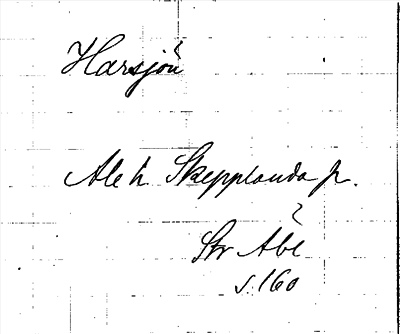 Harsjön
Ale h. Skepplanda sn.
Skr Abc
s. 160